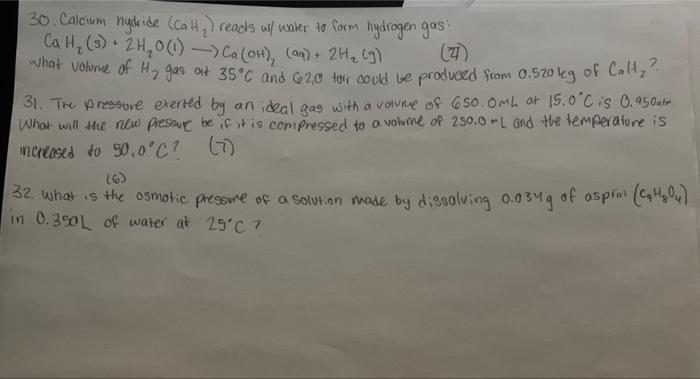 30. Calcium hydride (CaH₂) reacts w/ water to form hydrogen gas:
CaH₂(s) + 2H₂O(l) → Ca(OH)₂ (aq) + 2H₂(g)
What volume of H₂ gas at 35°C and 62,0 torr could be produced from 0.520kg of CaH₂?
31. The pressure exerted by an ideal gas with a volume of 650.0mL at 15.0°C is 0.950atm.
What will the new pressure be if it is compressed to a volume of 250.0mL and the temperature is
increased to 50.0°C? (7)
(6)
32. what is the osmotic pressure of a solution made by dissolving 0.034g of asprin (C₉H₈O₄)
in 0.350L of water at 25°C?